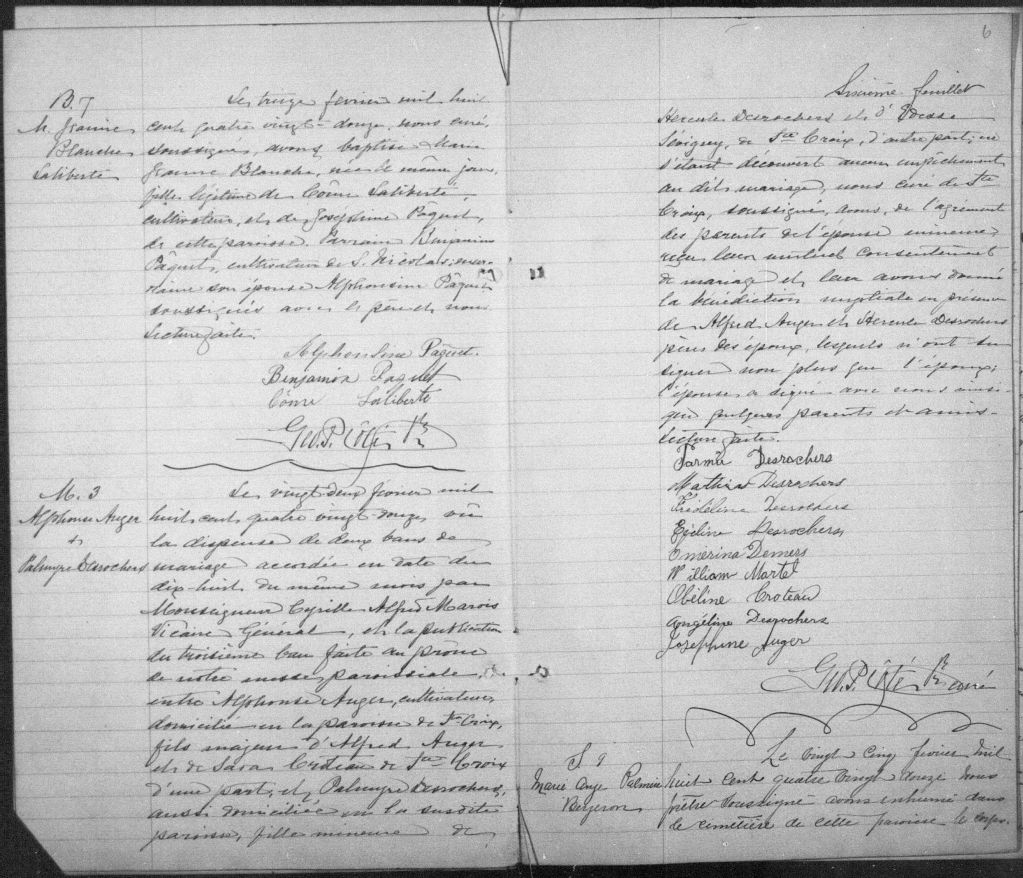 B. 7
M. Jeanne
Blanche
Laliberté
Le treize fevrier mil huit
cent quatre vingt-douze, nous curé,
soussigné, avons baptisé Marie
Jeanne Blanche, née le même jour,
fille légitime de Côme Laliberté,
cultivateur, et de Joséphine Pâquet,
de cette paroisse. Parrain Benjamin
Pâquet, cultivateur de S. Nicolas; mar-
raine son épouse Alphonsine Pâquet
soussignés avec le père et nous
Lecture faite.
Alphonsine Paquet
Benjamin Paquet
Côme Laliberte
Geo. P. Côté Ptre
M. 3
Alphonse Auger
+
Palmyre Desrochers
Le vingt-deux fevrier mil
huit cent quatre vingt-douze, vu
la dispense de deux bans de
mariage accordée en date du
dix-huit du même mois par
Monseigneur Cyrille Alfred Marois
Vicaire Général, et la publication
du troisième ban faite au prône
de notre messe paroissiale
entre Alphonse Auger, cultivateur,
domicilié en la paroisse de Ste Croix,
fils majeur d'Alfred Auger
et de Sara Croteau de Ste Croix
d'une part; et Palmyre Desrochers,
aussi domiciliée en la susdite
paroisse, fille mineure de
6
Sixième feuillet
Hercule Desrochers et d'Odesse
Sévigny, de Ste Croix, d'autre part; ne
s'étant découvert aucun empêchement
au dit mariage, nous curé de Ste
Croix, soussigné, avons, de l'agrément
des parents de l'épouse mineure,
reçu leur mutuel consentement
de mariage et leur avons donné
la bénédiction nuptiale en présence
de Alfred Auger et Hercule Desrochers
pères des époux, lesquels n'ont su
signer non plus que l'époux;
l'épouse a signé avec nous ainsi
que quelques parents et amis.
Lecture faite.
Parmé Desrochers
Mathias Desrochers
Fédéline Desrochers
Eveline Desrochers
Emerina Demers
William Martel
Obéline Croteau
Angéline Desrochers
Josephine Auger
Geo. P. Côté Ptre curé
S 9
Marie Ange Palmire
Bergeron
Le vingt cinq fevrier mil
huit cent quatre vingt douze nous
prêtre soussigné avons inhumé dans
le cimetière de cette paroisse le corps